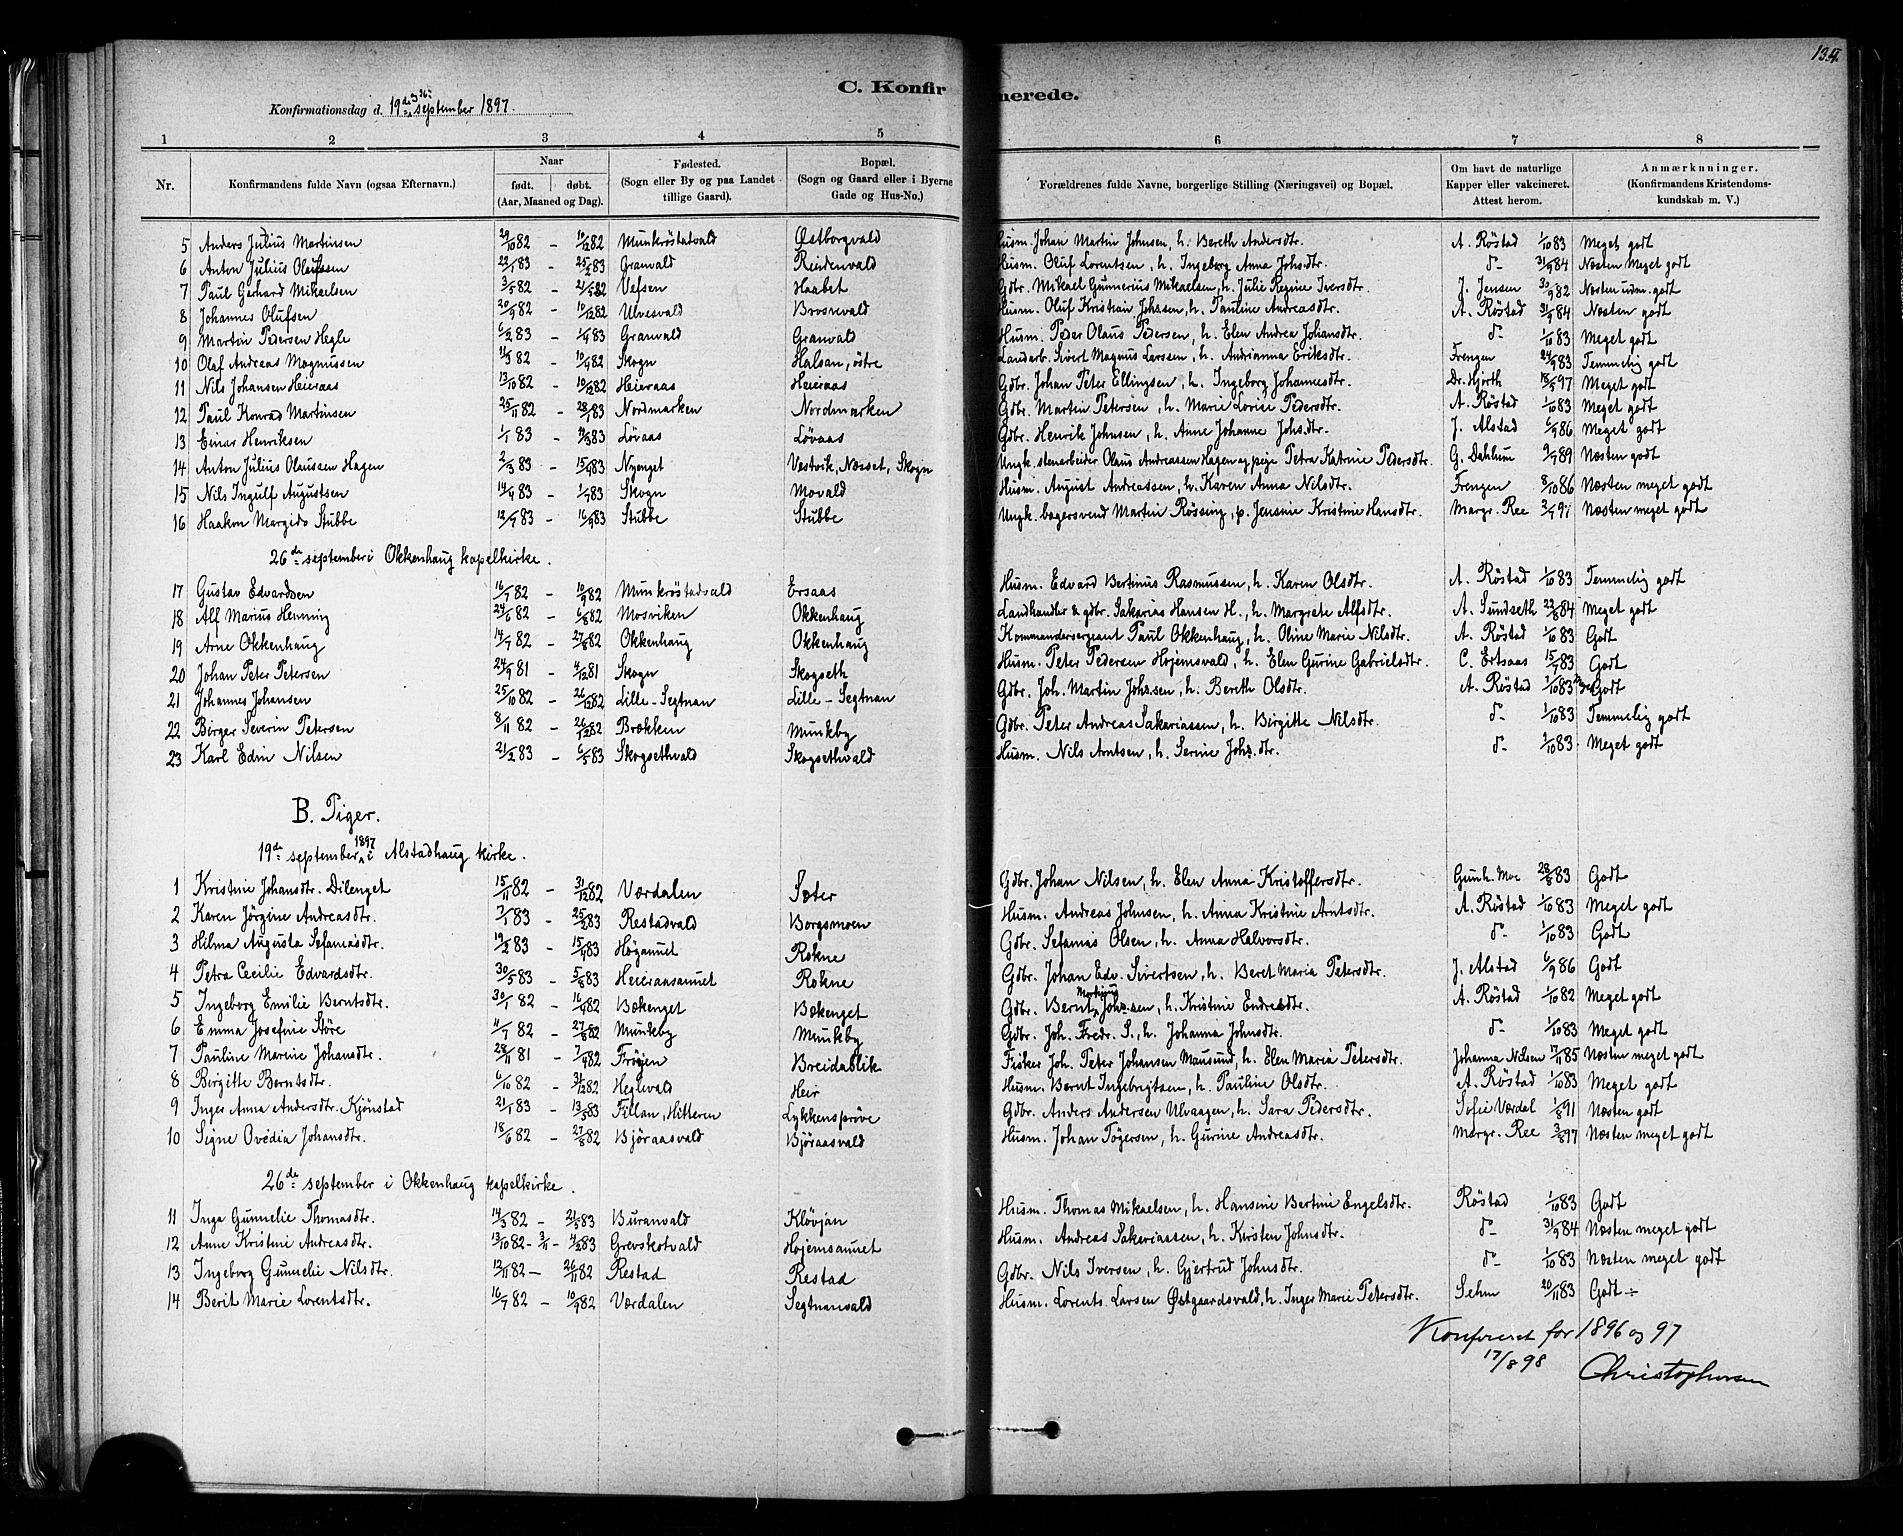 134.
C. Konfirmerede.
Konfirmationsdag d. 19de & 26de september 1897.
1 2 3 4 5 6 7 8
Nr. Konfirmandens fulde Navn (ogsaa Efternavn.) Naar født. døbt. (Aar, Maaned og Dag). Fødested. (Sogn eller By og paa Landet tillige Gaard). Bopæl. (Sogn og Gaard eller i Byerne Gade og Hus-No.) Forældrenes fulde Navne, borgerlige Stilling (Næringsvei) og Bopæl. Om havt de naturlige Kapper eller vakcineret. Attest herom. Anmærkninger. (Konfirmandens Kristendomskundskab m. V.)
5 Anders Julius Martinsen 29/10 82 – 10/12 82 Munkröstadvald Østborgvald Husm. Johan Martin Johnsen, h. Bereth Andersdtr. A. Röstad 1/10 83 Meget godt
6 Anton Julius Olufsen 22/1 83 – 25/2 83 Granvald Reindenvald Husm. Oluf Lorentsen, h. Ingeborg Anna Johs.dtr. do 31/9 84 Næsten Meget godt
7 Paul Gerhard Mikaelsen 3/5 82 – 21/5 82 Vefsen Haabet Gdbr. Mikael Gunnerius Mikaelsen, h. Julie Regine Iversdtr. J. Jensen 30/9 82 Næsten udm. godt
8 Johannes Olufsen 20/9 82 – 10/12 82 Ulvesvald Brosvevald Husm. Oluf Kristian Johssen, h. Pauline Andreasdtr. A. Röstad 31/9 84 Næsten godt
9 Martin Pedersen Hegle 6/2 83 – 1/4 83 Granvald Granvald Husm. Peder Olaus Pedersen, h. Elen Andrea Johansdtr. do 1/10 83 Meget godt
10 Olaf Andreas Magnussen 11/5 82 – 10/9 82 Skogn Halsan, østre Landarb. Sivert Magnus Larssen, h. Andrianna Eriksdtr. Frengen 24/9 83 Temmelig godt
11 Nils Johansen Heieraas 13/10 82 – 10/12 82 Heieraas Heieraas Gdbr. Johan Peter Ellingsen, h. Ingeborg Johannesdtr. Dr. Hjorth 18/5 97 Meget godt
12 Paul Konrad Martinsen 25/11 82 – 28/1 83 Nordmarken Nordmarken Gdbr. Martin Petersen, h. Marie Lovise Pedersdtr. A. Röstad 1/10 83 Meget godt
13 Einar Henriksen 1/1 83 – 4/3 83 Løvaas Løvaas Gdbr. Henrik Johnsen, h. Anne Johanne Johs.dtr. J. Alstad 6/9 86 Meget godt
14 Anton Julius Olaussen Hagen 2/3 83 – 15/4 83 Nyenget Vestvik, Næsset, Skogn Ungk. stenarbeider Olaus Andreassen Hagen og pige Petra Katrine Pedersdtr. G. Dahlum 9/7 89 Næsten godt
15 Nils Ingulf Augustsen 14/4 83 – 1/7 83 Skogn Movald Husm. August Andreassen, h. Karen Anna Nilsdtr. Frengen 8/10 86 Næsten meget godt
16 Haakon Margido Stubbe 12/7 83 – 16/9 83 Stubbe Stubbe Ungk. bagersvend Martin Røssing, p. Jensine Kristine Hansdtr. Margr. Ree 3/7 97 Næsten meget godt
26de september i Okkenhaug kapelkirke.
17 Gustav Edvardsen 16/7 82 – 10/9 82 Munkröstadvald Ersaas Husm. Edvard Bertinus Rasmussen, h. Karen Olsdtr. A. Röstad 1/10 83 Temmelig godt
18 Alf Marius Henning 24/6 82 – 6/8 82 Mosviken Okkenhaug Landhandler & gdbr. Sakarias Hansen H., h. Margrete Alfsdtr. A. Sundseth 22/8 84 Meget godt
19 Arne Okkenhaug 14/7 82 – 27/8 82 Okkenhaug Okkenhaug Kommandersergeant Paul Okkenhaug, h. Oline Marie Nilsdtr. A. Röstad 1/10 83 Godt
20 Johan Peter Petersen 24/9 81 – 4/12 81 Skogn Skogseth Husm. Peter Pedersen Hojemsvald, h. Elen Gurine Gabrielsdtr. C. Ertsaas 15/7 83 Godt
21 Johannes Johansen 25/10 82 – 26/12 82 Lille-Segtnan Lille-Segtnan Gdbr. Joh. Martin Johssen, h. Bereth Olsdtr. A. Röstad 1/10 83 Godt
22 Börger Severin Petersen 8/11 82 – 26/12 82 Brækken Munkby Gdbr. Peter Andreas Sakariassen, h. Birgitte Nilsdtr. do 1/10 83 Temmelig godt
23 Karl Edin Nilsen 21/2 83 – 6/5 83 Skogsethvald Skogsethvald Husm. Nils Arntsen, h. Serine Johs.dtr. do 1/10 83 Meget godt
B. Piger.
19de september 1897 i Alstadhaug kirke.
1 Kristine Johansdtr. Dilenget 15/11 82 – 31/12 82 Værdalen Sæter Gdbr. Johan Nilsen, h. Elen Anna Kristoffersdtr. Gunh. Moe 28/8 83 Godt
2 Karen Jörgine Andreasdtr. 7/1 83 – 25/2 83 Restadvald Borgsmoen Husm. Andreas Johnsen, h. Anna Kristine Arntsdtr. A. Röstad 1/10 83 Meget godt
3 Hilma Augusta Sefaniasdtr. 19/2 83 – 15/4 83 Högannet Rokne Gdbr. Sefanias Olsen, h. Anna Halvorsdtr. do 1/10 83 Godt
4 Petra Cecilie Edvardsdtr. 30/5 83 – 5/8 83 Heieraasaunet Rokne Gdbr. Johan Edv. Sivertsen, h. Beret Maria Petersdtr. J. Alstad 6/9 86 Godt
5 Ingeborg Emilie Berntsdtr. 30/1 82 – 16/4 82 Bækenget Bækenget Gdbr. Bernt Martinus Johs.sen, h. Kristine Endresdtr. A. Röstad 1/10 82 Meget godt
6 Emma Josefine Störe 11/7 82 – 27/8 82 Munkby Munkby Gdbr. Joh. Fredr. S., h. Johanna Johnsdtr. do 1/10 83 Meget godt
7 Pauline Marine Johansdtr. 28/11 81 – 7/4 82 Fröjen Breidablik Fisker Joh. Peter Johansen Mausund, h. Elen Maria Petersdtr. Johanna Nilsen 17/1 85 Næsten meget godt
8 Birgitte Berntsdtr. 6/10 82 – 31/12 82 Heglevald Heir Husm. Bernt Ingebrigtsen, h. Pauline Olsdtr. A. Röstad 1/10 83 Meget godt
9 Inger Anna Andersdtr. Kjönstad 21/1 83 – 13/5 83 Fillan, Hitteren Lykkensprøve Gdbr. Anders Andersen Ulvaagen, h. Sara Pedersdtr. Sofie Værdal 1/8 91 Næsten godt
10 Signe Ovedia Johansdtr. 18/6 82 – 27/8 82 Björaasvald Björaasvald Husm. Johan Tögersen, h. Gurine Andreasdtr. Margr. Ree 3/8 97 Næsten meget godt
26de september i Okkenhaug kapelkirke.
11 Inga Gunnelie Thomasdtr. 14/3 82 – 21/5 83 Buranvald Klövjan Husm. Thomas Mikaelsen, h. Hansine Bertine Engelsdtr. Röstad 1/10 83 Godt
12 Anne Kristine Andreasdtr. 13/10 82 – 3/11 – 4/2 83 Grevskotvald Hojemsaunet Husm. Andreas Sakariassen, h. Kirsten Johnsdtr. do 31/9 84 Næsten meget godt
13 Ingeborg Gunnelie Nilsdtr. 12/11 82 – 26/11 82 Restad Restad Gdbr. Nils Iversen, h. Gjertrud Johnsdtr. do 1/10 83 Næsten meget godt
14 Berit Marie Lorentsdtr. 16/7 82 – 10/9 82 Værdalen Segtnanvald Husm. Lorents Larsen Østgaardsvald, h. Inger Marie Petersdtr. Sehm 20/11 83 Godt ÷
Konfereret for 1896 og 97
17/8 98
Christophersen